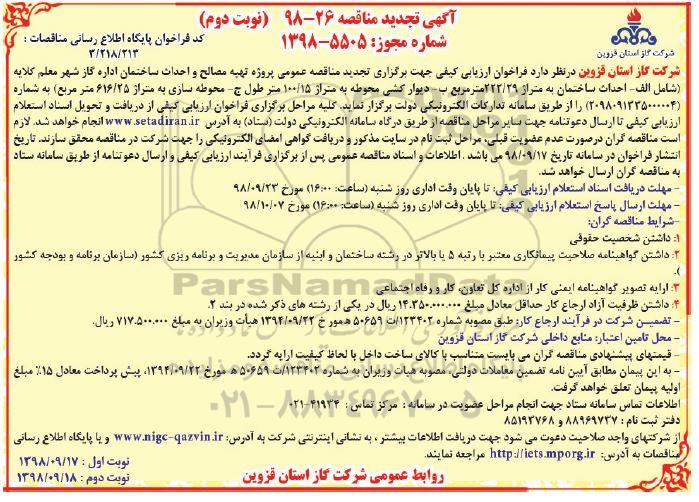 آگهی تجدید مناقصه ۲۶-۹۸ (نوبت دوم)
شماره مجوز: ۵۵۰۵-۱۳۹۸
کد فراخوان پایگاه اطلاع رسانی مناقصات :
۳/۲۱۸/۲۱۳
شرکت گاز استان قزوین
شرکت گاز استان قزوین درنظر دارد فراخوان ارزیابی کیفی جهت برگزاری تجدید مناقصه عمومی پروژه تهیه مصالح و احداث ساختمان اداره گاز شهر معلم کلایه
(شامل الف- احداث ساختمان به متراژ ۲۲۲/۲۹مترمربع ب- دیوار کشی محوطه به متراژ ۱۰۰/۱۵ متر طول ج- محوطه سازی به متراژ ۶۱۶/۲۵ متر مربع) به شماره
(۲۰۹۸۰۹۱۳۳۵۰۰۰۰۰۴) را از طریق سامانه تدارکات الکترونیکی دولت برگزار نماید. کلیه مراحل برگزاری فراخوان ارزیابی کیفی از دریافت و تحویل اسناد استعلام
ارزیابی کیفی تا ارسال دعوتنامه جهت سایر مراحل مناقصه از طریق درگاه سامانه الکترونیکی دولت (ستاد) به آدرس www.setadiran.ir انجام خواهد شد. لازم
است مناقصه گران درصورت عدم عضویت قبلی، مراحل ثبت نام در سایت مذکور و دریافت گواهی امضای الکترونیکی را جهت شرکت در مناقصه محقق سازند. تاریخ
انتشار فراخوان در سامانه تاریخ ۹۸/۰۹/۱۷ می باشد . اطلاعات و اسناد مناقصه عمومی پس از برگزاری فرآیند ارزیابی کیفی و ارسال دعوتنامه از طریق سامانه ستاد
به مناقصه گران ارسال خواهد شد.
- مهلت دریافت اسناد استعلام ارزیابی کیفی: تا پایان وقت اداری روز شنبه (ساعت: ۱۶:۰۰) مورخ ۹۸/۰۹/۲۳
- مهلت ارسال پاسخ استعلام ارزیابی کیفی: تا پایان وقت اداری روز شنبه (ساعت: ۱۶:۰۰) مورخ ۹۸/۱۰/۰۷
-شرایط مناقصه گران:
۱: داشتن شخصیت حقوقی
۲: داشتن گواهینامه صلاحیت پیمانکاری معتبر با رتبه ۵ یا بالاتر در رشته ساختمان و ابنیه از سازمان مدیریت و برنامه ریزی کشور (سازمان برنامه و بودجه کشور
).
۳: ارایه تصویر گواهینامه ایمنی کار از اداره کل تعاون، کار و رفاه اجتماعی
۴: داشتن ظرفیت آزاد ارجاع کار حداقل معادل مبلغ ۱۴.۳۵۰.۰۰۰.۰۰۰ ریال در یکی از رشته های ذکر شده در بند ۲.
- تضمین شرکت در فرآیند ارجاع کار: طبق مصوبه شماره ۱۲۳۴۰۲/ت ۵۰۶۵۹ ه مورخ ۱۳۹۴/۰۹/۲۲ هیأت وزیران به مبلغ ۷۱۷.۵۰۰.۰۰۰ ریال.
- محل تامین اعتبار: منابع داخلی شرکت گاز استان قزوین
- قیمتهای پیشنهادی مناقصه گران می بایست متناسب با کالای ساخت داخل با لحاظ کیفیت ارایه گردد.
- به این پیمان مطابق آیین نامه تضمین معاملات دولتی، مصوبه هیات وزیران به شماره ۱۲۳۴۰۲/ت ۵۰۶۵۹ ه مورخ ۱۳۹۴/۰۹/۲۲، پیش پرداخت معادل ۱۵٪ مبلغ
اولیه پیمان تعلق خواهد گرفت.
اطلاعات تماس سامانه ستاد جهت انجام مراحل عضویت در سامانه : مرکز تماس : ۴۱۹۳۴-۰۲۱
دفتر ثبت نام : ۸۸۹۶۹۷۳۷ و ۸۵۱۹۳۷۶۸
از شرکتهای واجد صلاحیت دعوت می شود جهت دریافت اطلاعات بیشتر ، به نشانی اینترنتی شرکت به آدرس: www.nigc-qazvin.ir و یا پایگاه اطلاع رسانی
مناقصات به آدرس: http://iets.mporg.ir مراجعه نمایند.
نوبت اول : ۱۳۹۸/۰۹/۱۷
نوبت دوم : ۱۳۹۸/۰۹/۱۸
روابط عمومی شرکت گاز استان قزوین
ParsNamadData
۰۲۱-۸۸۳۴۹۶۷۰-۵